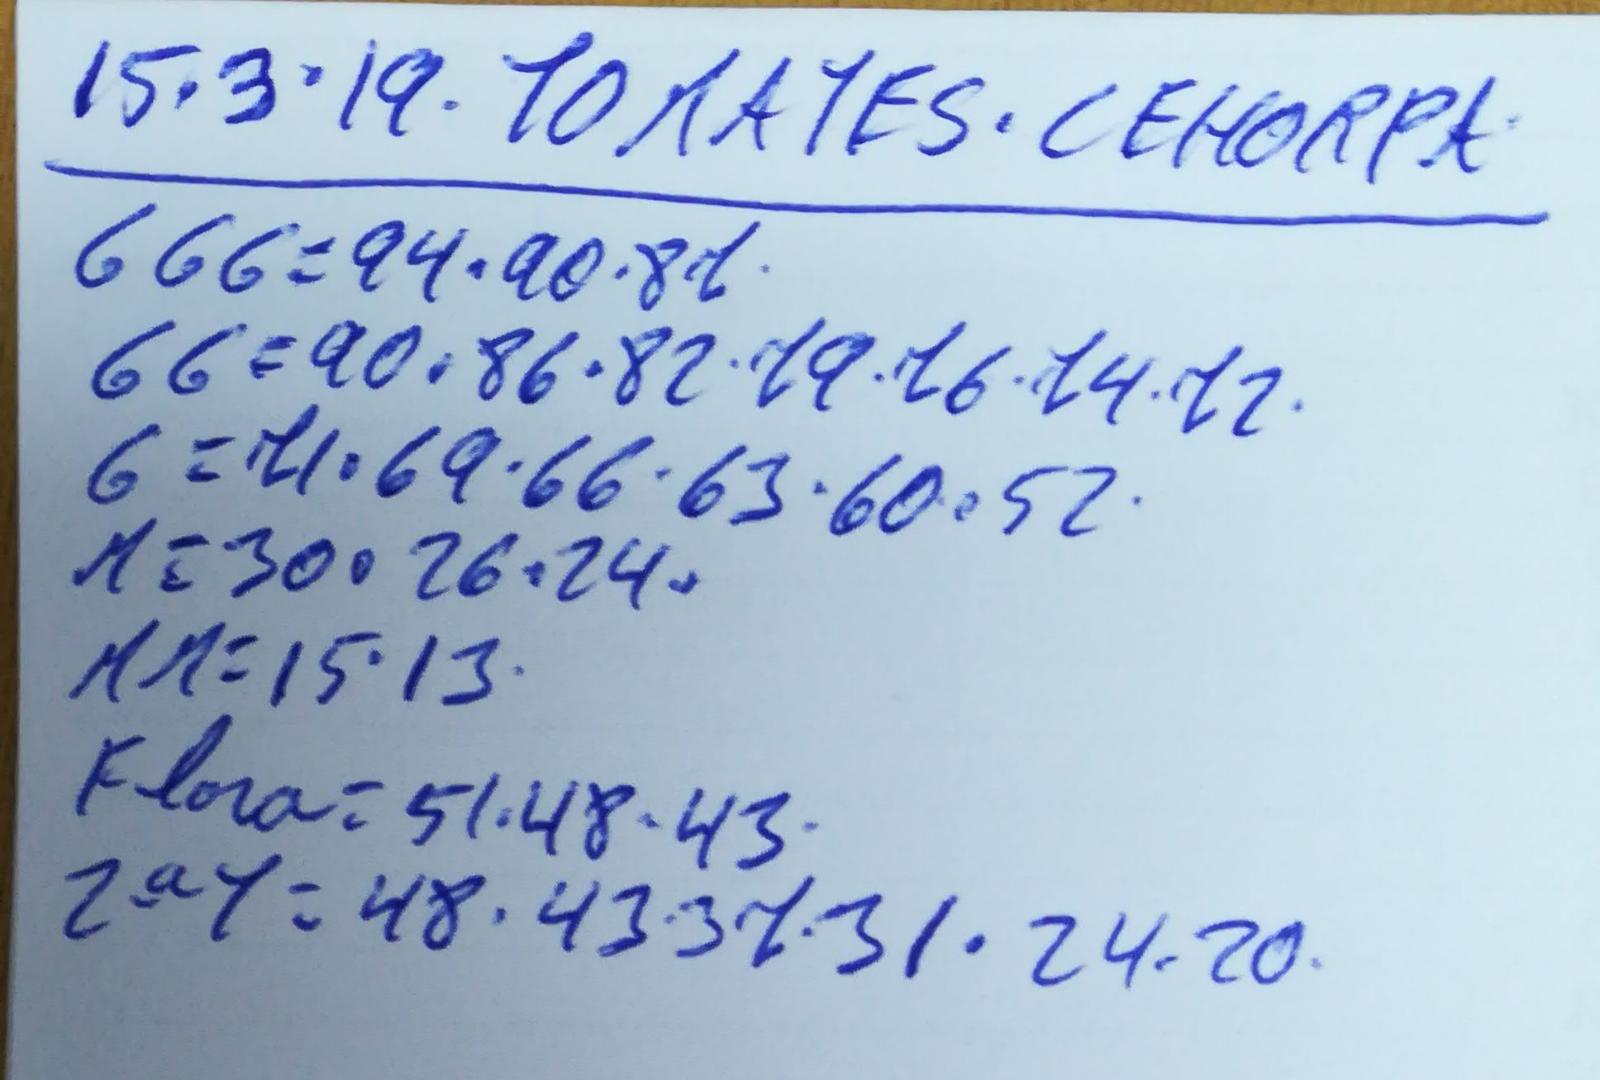 15.3.19. TOMATES. CEHORPA.
666=94.90.87.
66=90.86.82.79.76.74.72.
6=71.69.66.63.60.52.
M=30.26.24.
MM=15.13.
Flora=51.48.43.
2ªT=48.43.37.31.24.20.